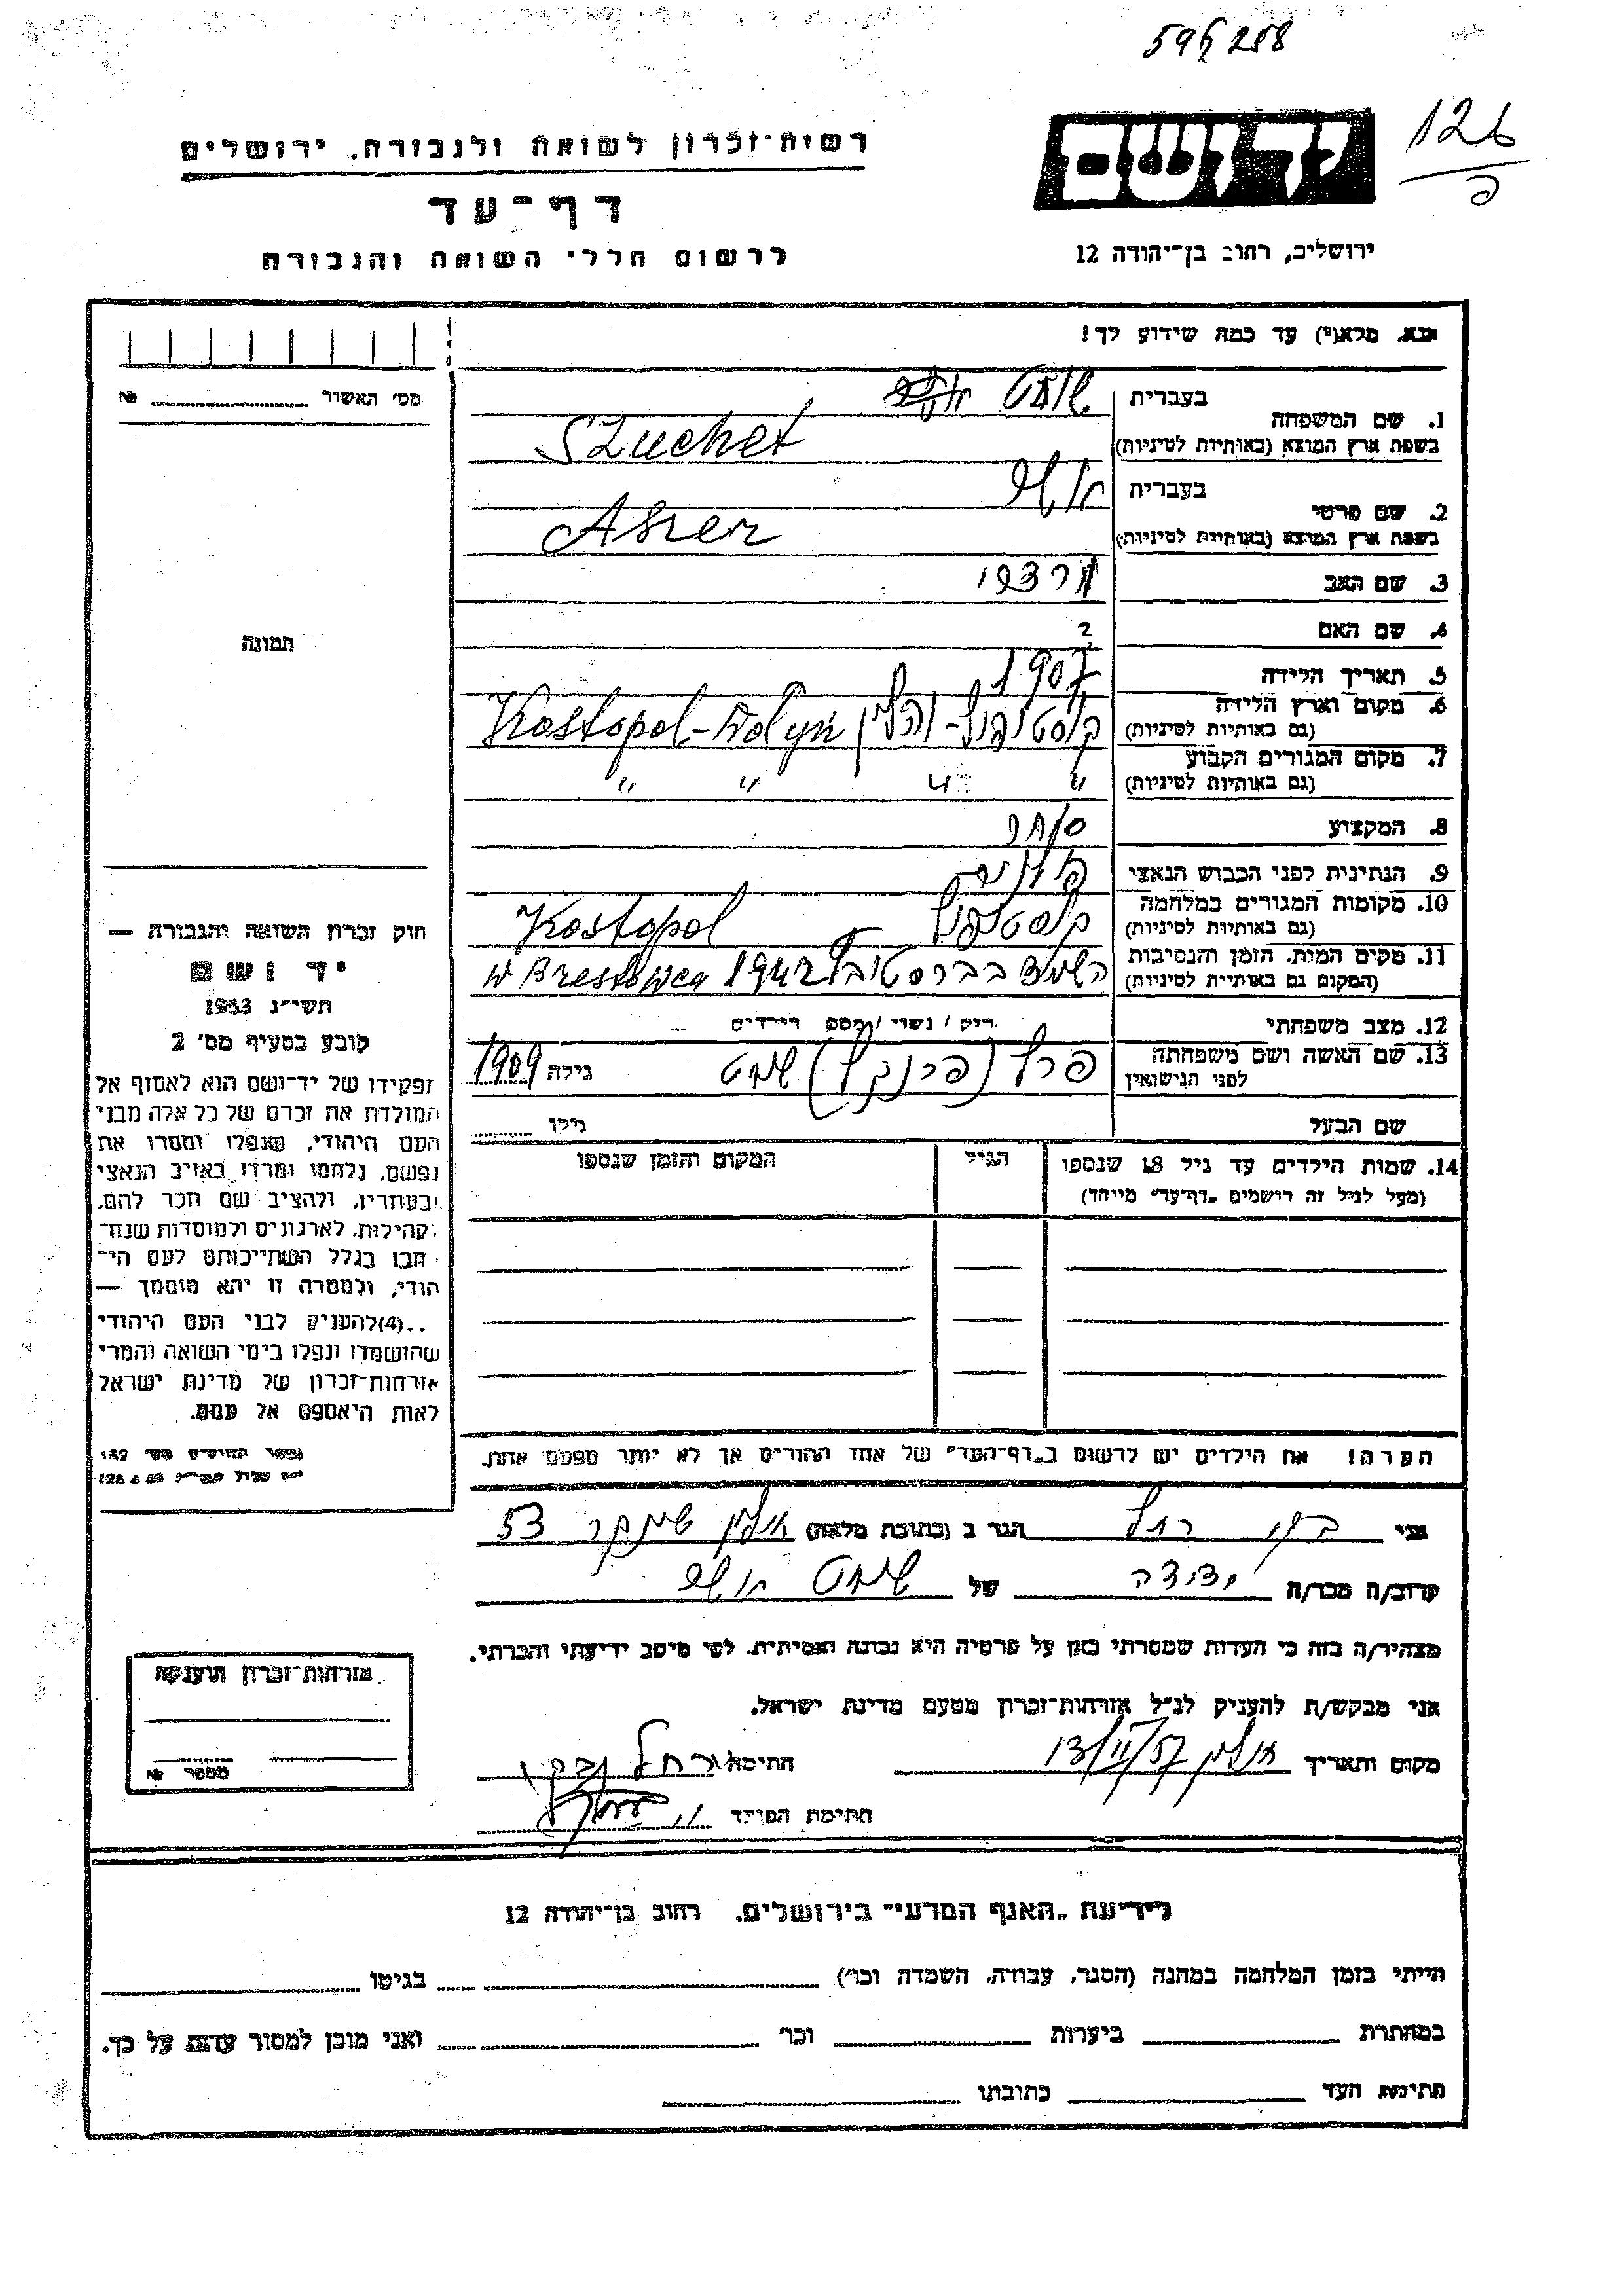 596288
126
רשות־זכרון לשואה ולגבורה. ירושלים
דף־עד
לרשום חללי השואה והגבורה
יד ושם
ירושלים, רחוב בן־יהודה 12
אנא. מלא(י) עד כמה שידוע לך!
מס׳ האשור № 
תמונה
1. שם המשפחה
בעברית שוחט
בשפת ארץ המוצא (באותיות לטיניות) Szuchet
2. שם פרטי
בעברית אשר
בשפת ארץ המוצא (באותיות לטיניות) Aszer
3. שם האב
4. שם האם ?
5. תאריך הלידה 1907
6. מקום וארץ הלידה
(גם באותיות לטיניות) קוסטופול - ווהלין Kostopol - Wolyn
7. מקום המגורים הקבוע
(גם באותיות לטיניות) " " " "
8. המקצוע סוחר
9. הנתינות לפני הכבוש הנאצי
10. מקומות המגורים במלחמה
(גם באותיות לטיניות) קוסטופול Kostopol
11. מקום המות. הזמן והנסיבות
(המקום גם באותיות לטיניות) 1942 w Brestowca
12. מצב משפחתי רוק / נשוי / מספר הילדים
13. שם האשה ושם משפחתה
לפני הנישואין פרל (פרנקל) שוחט גילה 1909
שם הבעל גילו
14. שמות הילדים עד גיל 18 שנספו
(מעל לגיל זה רושמים „דף־עד” מיוחד)
הגיל
המקום והזמן שנספו
הערה! את הילדים יש לרשום ב„דף־העד” של אחד ההורים אך לא יותר מפעם אחת.
חוק זכרון השואה והגבורה —
יד ושם
תשי״ג 1953
קובע בסעיף מס׳ 2
תפקידו של יד־ושם הוא לאסוף אל
המולדת את זכרם של כל אלה מבני
העם היהודי, שנפלו ומסרו את
נפשם, נלחמו ומרדו באויב הנאצי
ובעוזריו, ולהציב שם וזכר להם,
לקהילות, לארגונים ולמוסדות שנח־
רבו בגלל השתייכותם לעם הי־
הודי, ולמטרה זו יהא מוסמך —
..(4)להעניק לבני העם היהודי
שהושמדו ונפלו בימי השואה והמרי
אזרחות־זכרון של מדינת ישראל
לאות היאספם אל עמם.
אני רחל הגר ב (כתובת מלאה) 53
קרוב/ה מכר/ה ידידה של שוחט אשר
מצהיר/ה בזה כי העדות שמסרתי כאן על פרטיה היא נכונה ואמיתית. לפי מיטב ידיעתי והכרתי.
אני מבקש/ת להעניק לנ״ל אזרחות־זכרון מטעם מדינת ישראל.
מקום ותאריך 13/II/57 חתימה רחל
חתימת הפוקד
אזרחות־זכרון הוענקה
מספר №
לידיעת „האגף המדעי” בירושלים. רחוב בן־יהודה 12
הייתי בזמן המלחמה במחנה (הסגר, עבודה, השמדה וכו׳) בגיטו
במחתרת ביערות וכו׳ ואני מוכן למסור עדות על כך.
חתימת העד כתובתו